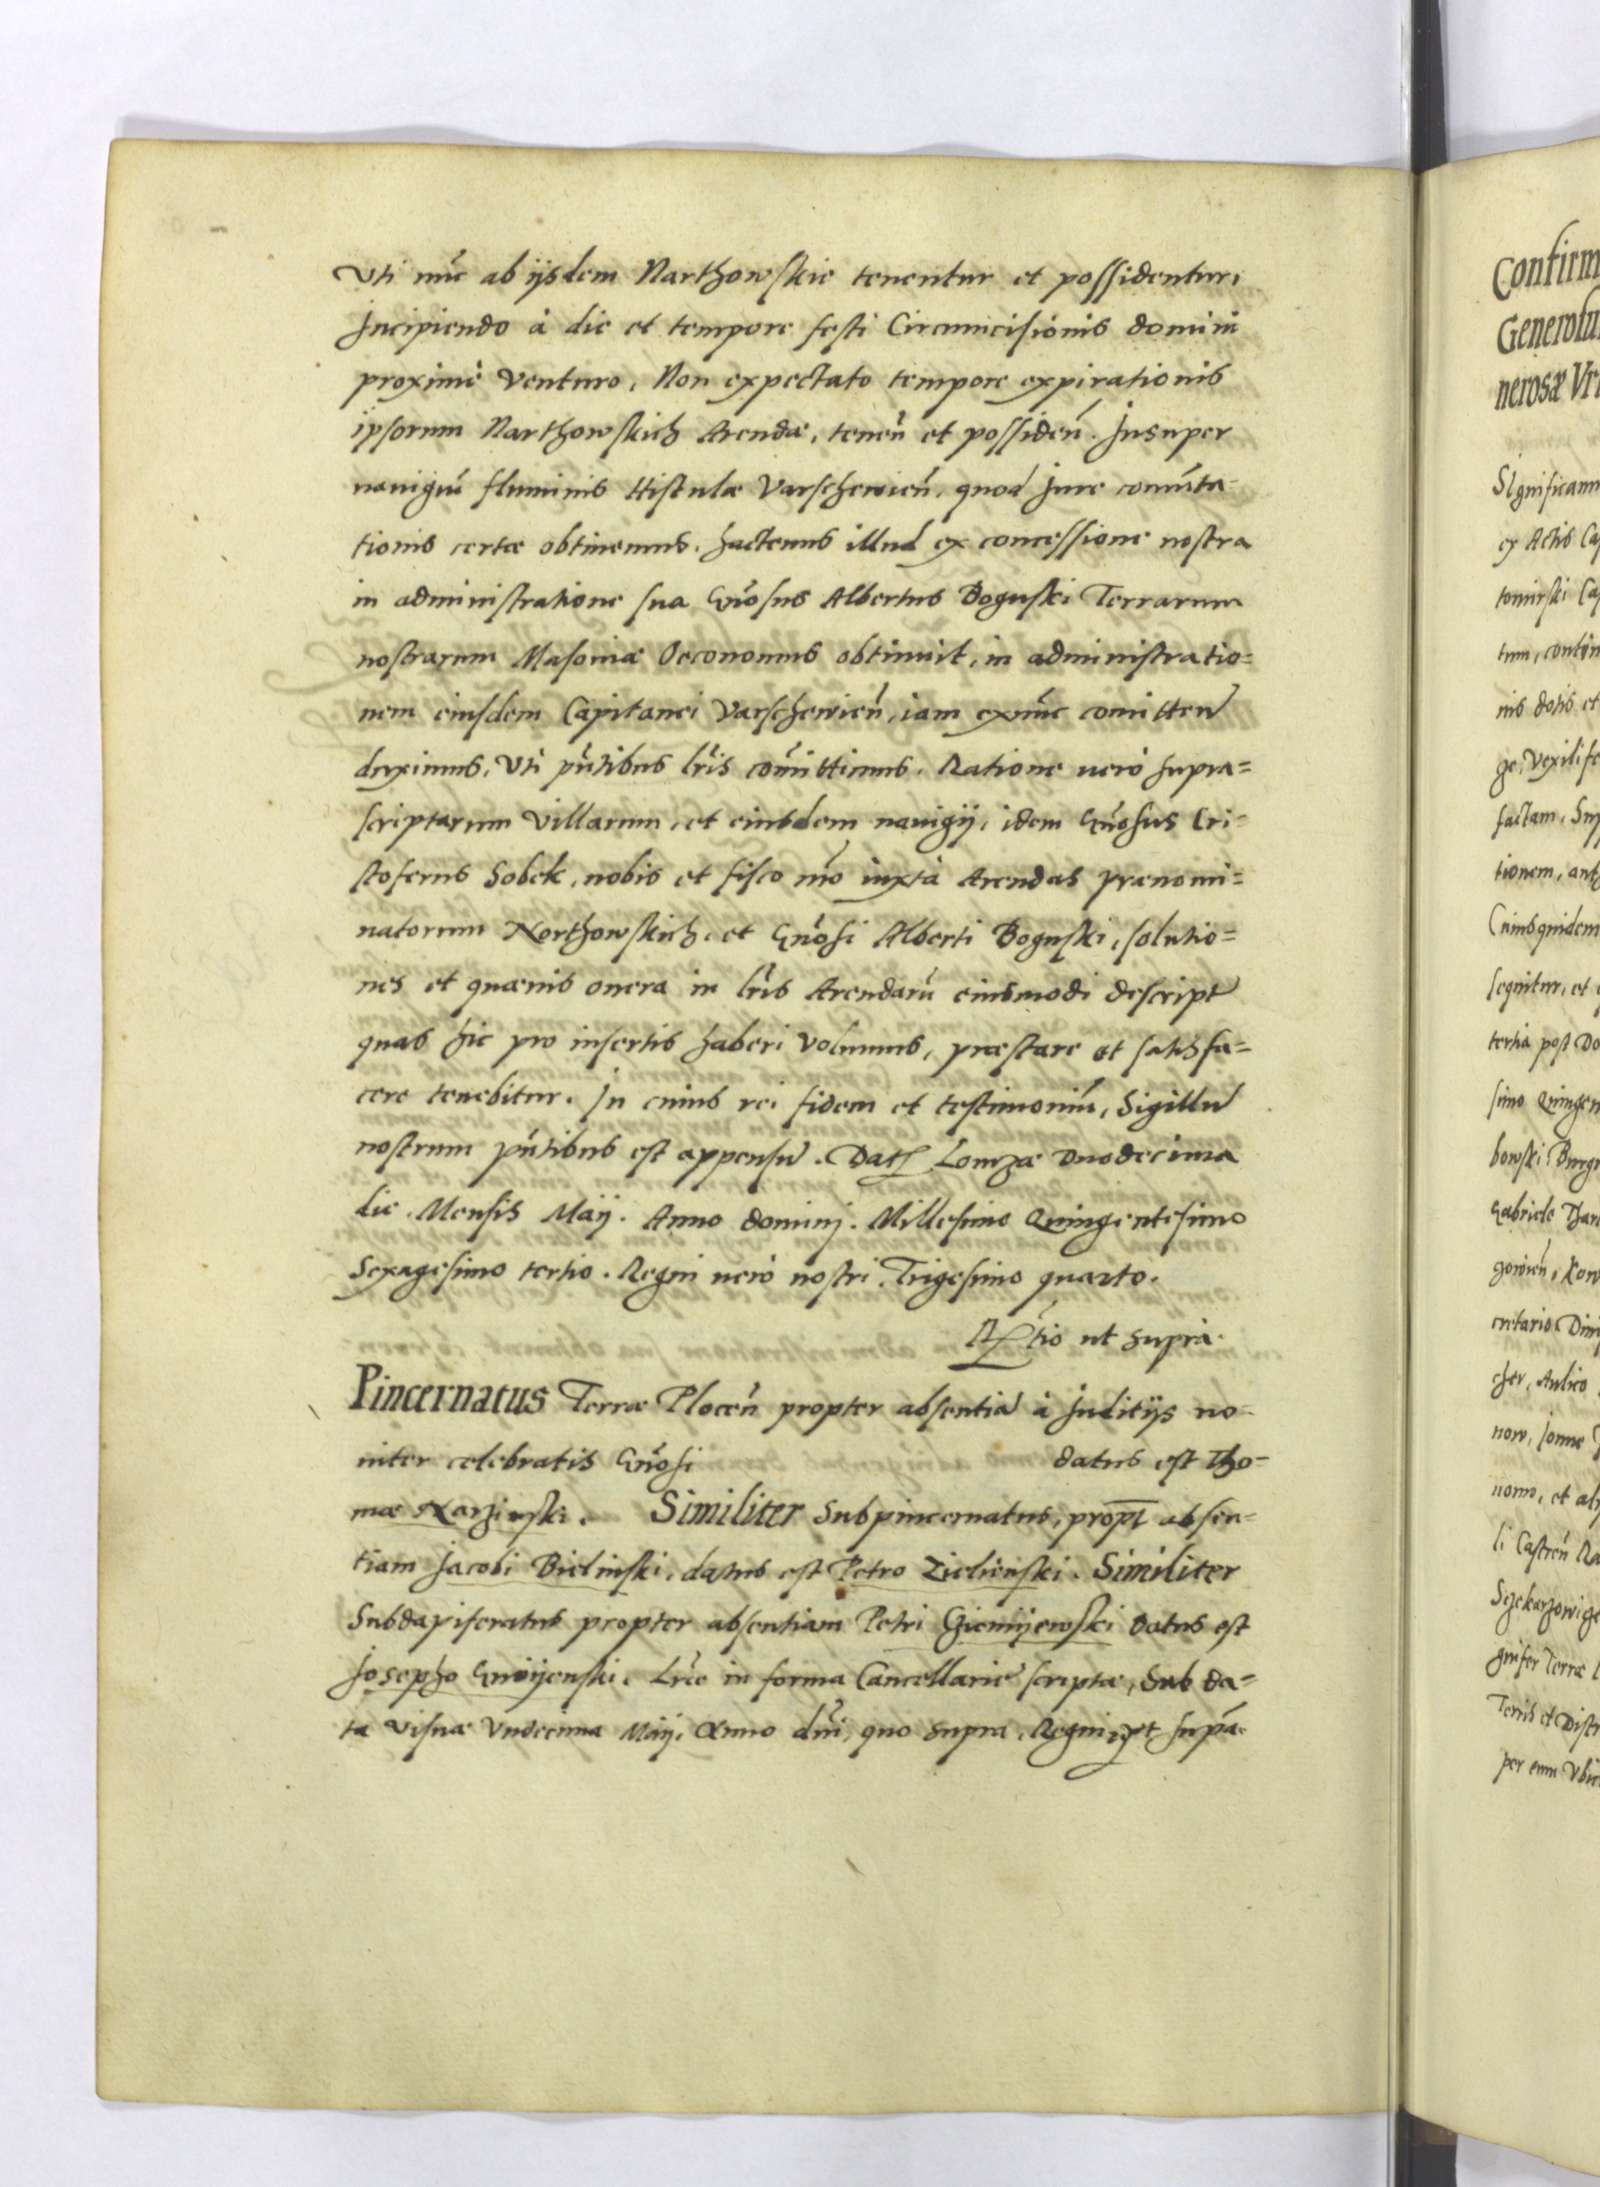 Vti nūc ab ijsdem Narthowskie tenentur et possidentur,
Incipiendo à die et tempore festi Circumcisionis domini
proximè venturo, Non expectato tempore expirationis
ipsorum Narthowskich Arendæ, tenen̄ et possiden̄. Insuper
nauigiū fluminis Histulæ Varschewien̄, quod Jure comūta-
tionis certæ obtinemus, hactenus illud ex concessione nostra
in administratione sua Gn̄osus Albertus Boguski Terrarum
nostrarum Masoviæ Oeconomus obtinuit, in administratio=
nem eiusdem Capitanei Varschewien̄, iam exnūc comitten̄
duximus, Vti pn̄tibus lr̄is com̄ittimus. Ratione uerò supra=
scriptarum Villarum, et eiusdem nauigij, idem Gn̄osus Cri=
stoferus Sobek, nobis et fisco nr̄o iuxtà Arendas prænomi=
natorum Northowskich, et Gn̄osi Alberti Boguski, solutio=
nes et quæuis onera in lr̄is Arendarū eiusmodi descript
quas hic pro insertis haberi volumus, præstare et satisfa=
cere tenebitur. In cuius rei fidem et testimoniū, Sigillū
nostrum pn̄tibus est appensū. Dat Lomzæ Duodecima
die Mensis Maij. Anno domini. Millesimo Quingentesimo
Sexagesimo tertio. Regni uerò nostri Trigesimo quarto.
Rtio ut supra.
Pincernatus Terræ Plocen̄ propter absentiā à Juditijs no-
uiter celebratis Gn̄osi datus est Tho=
mæ Narzinski. Similiter Subpincernatus, propt absen-
tiam Jacobi Bielinski, datus est Petro Zielienski. Similiter
Subdapiferatus propter absentiam Petri Giemijewski Datus est
Josepho Gnoijenski. Lr̄æ in forma Cancellariæ scriptæ, Sub da=
ta Visnæ Vndecima Maij. Anno dn̄i, quo supra, Regni ut supa.
Confirm
Generosu
nerosæ Vr
SIgnificam
ex Actis Ca
tomirski Ca
tum, contin
nis dotis et
ge, Vexilife
factam, Sup
tionem, ant
Cuiusquidem
sequitur, et
tertia post Do
simo Quingen
bowski Burgr
Gabriele Thar
gowien̄, Kow
cretario Dimi
cher, Aulico
now, Jonne
nomo, et al
li Castren̄ Ra
Szekarzowige
gnifer Terræ
Terris et Distr
per eum Vbi